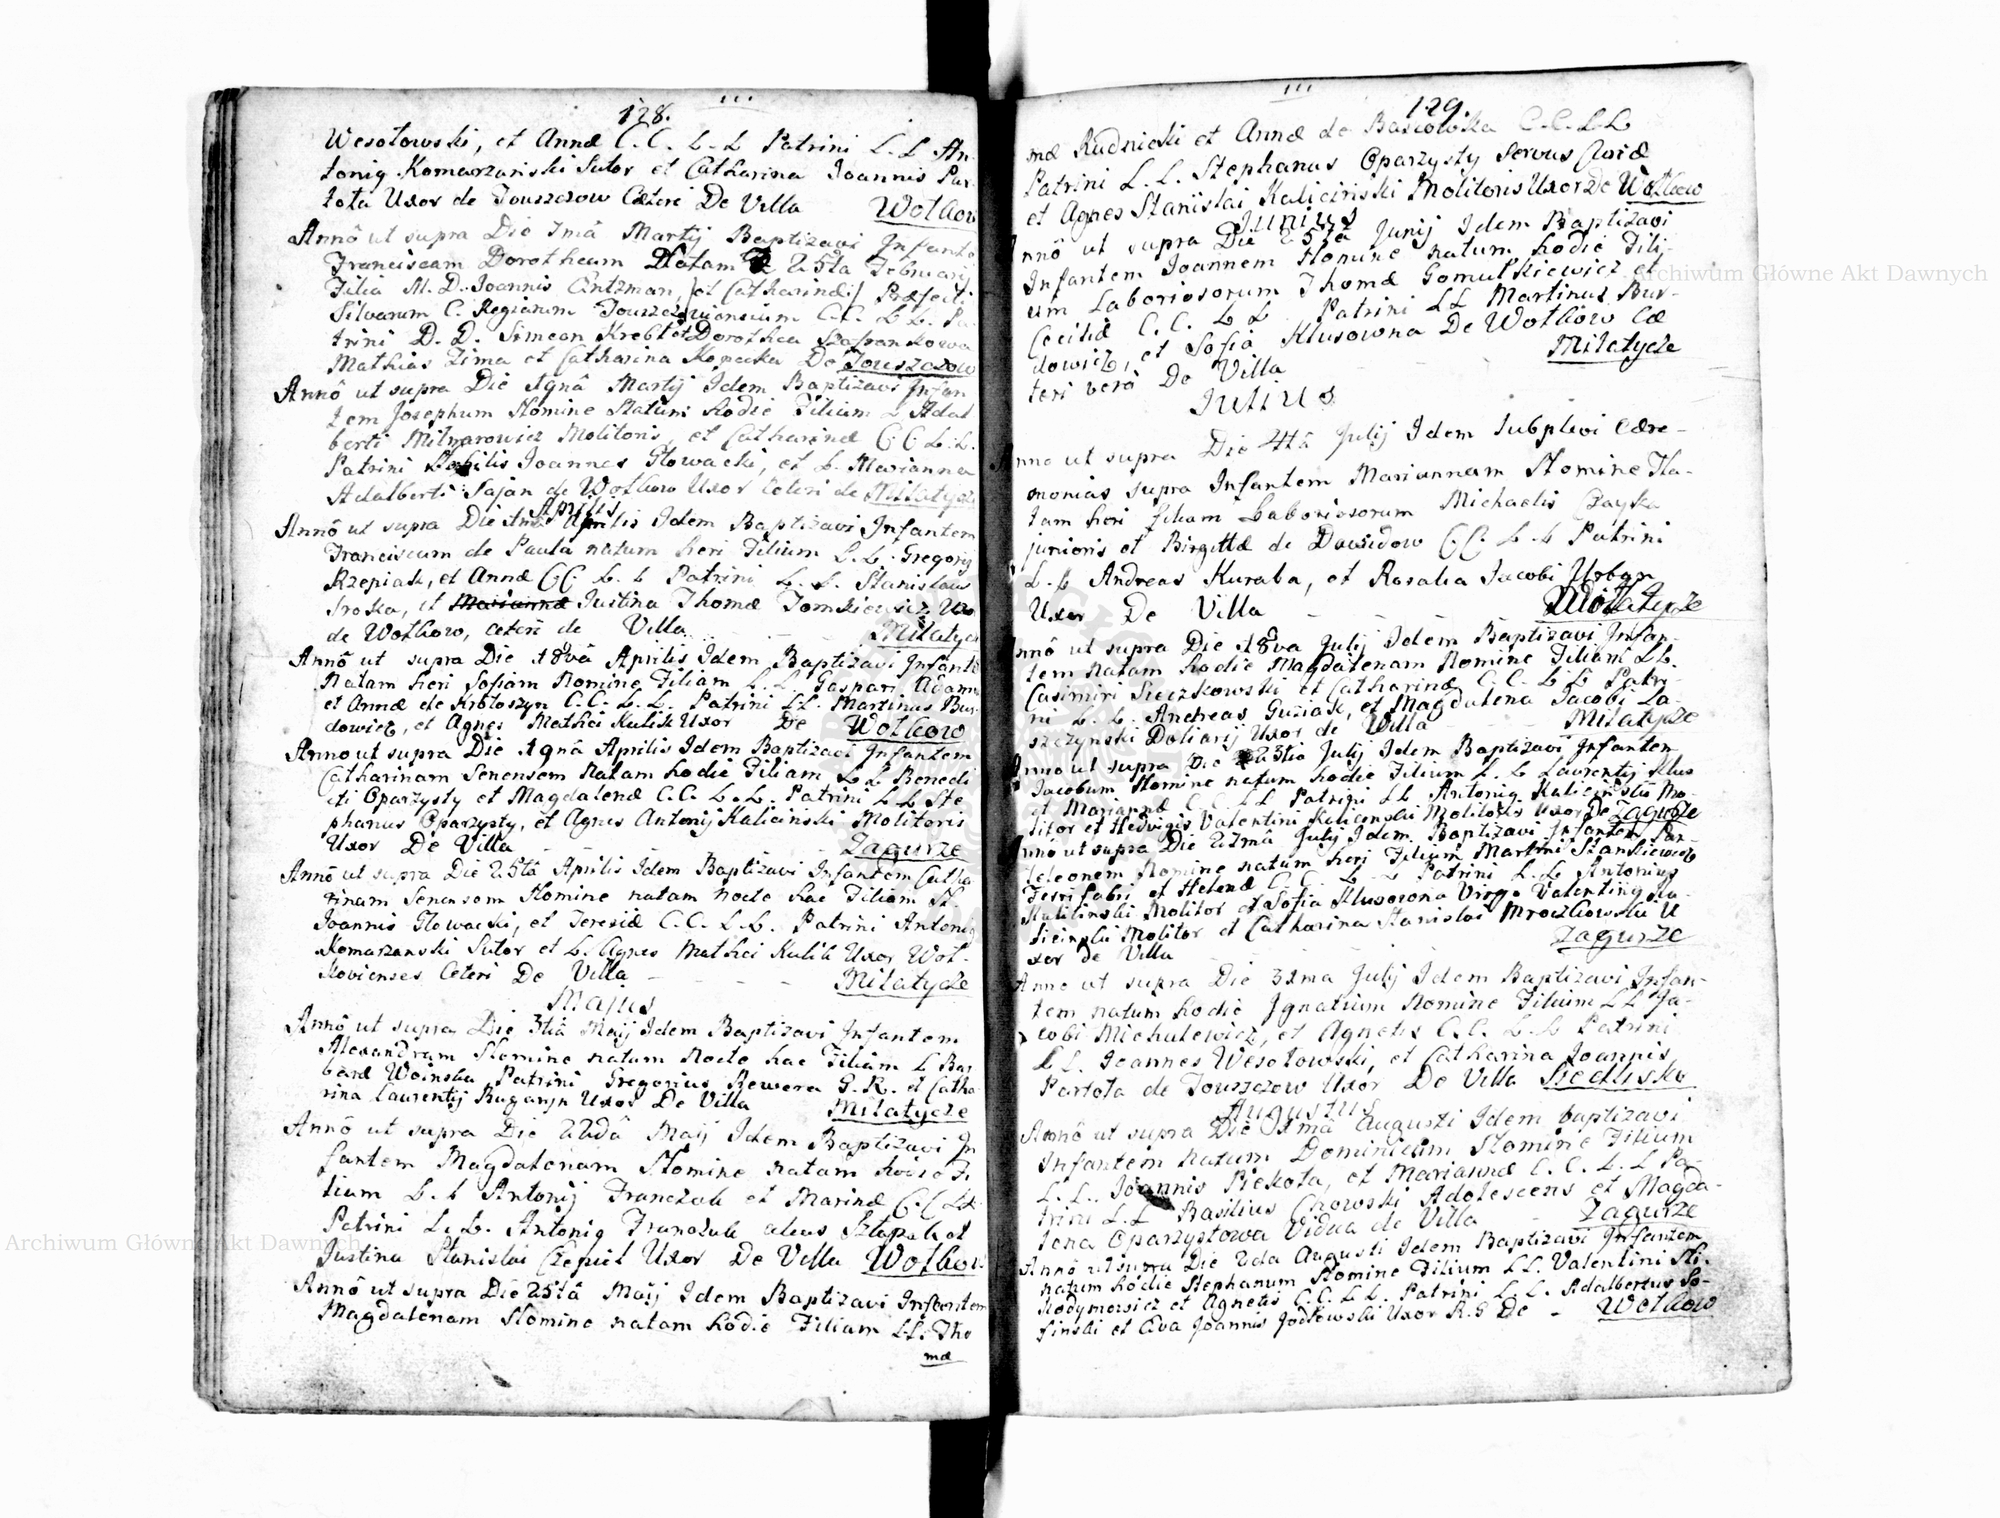 128.
Wesołowski, et Annæ C.C. L.L. Patrini L.L. An-
toniq Komarzański Sutor et Catharina Joannis Par-
tota Uxor de Touszczow Cæteri De Villa Wolkow
Annô ut supra Die 1mâ Martij Baptizavi Infante
Franciscam Dorotheam Natam 25ta Februarij
Filia M. D. Joannis Cintzman, et Catharinæ Præfecti
Silvarum C. Regiarum Touszczoviensium C.C. L.L. Pa-
trini D. D. Simeon Krebs et Dorothea Szafrankowa
Mathias Zima et Catharina Kopacka De Touszczow
Annô ut supra Die 19nâ Martij Idem Baptizavi Infan
tem Josephum Nomine Natum hodie Filium L Adal
berti Mlynarowicz Molitoris, et Catharinæ C C L.L.
Patrini Nobilis Joannes Głowacki, et L. Marianna
Adalberti Sajan de Wolkow Uxor Ceteri de Milatycze
Aprilis
Annô ut supra Die Aprilis Idem Baptizavi Infantem
Franciscum de Paula natum heri Filium L.L. Gregorij
Rzepiak, et Annæ CC L. L Patrini L. L. Stanislaus
Sroka, et Justina Thomæ Tomkiewicz Uxo
de Wolkow, ceteri de Villa Milatycz
Annô ut supra Die 18vâ Aprilis Idem Baptizavi Infante
Natam heri Sofiam Nomine Filiam L.L. Gaspari Adamu
et Annæ de Krotoszyn C.C. L.L. Patrini L.L. Martinus Bur-
dowicz, et Agnes Mathei Kulik Uxor De Wolkow
Anno ut supra Die 19nâ Aprilis Idem Baptizavi Infantem
Catharinam Senensem Natam hodie Filiam L L Benedi
cti Oparzysty et Magdalenæ C.C. L.L. Patrini L L Ste
phanus Oparzysty, et Agnes Antonij Kalicinski Molitoris
Uxor De Villa Zagurze
Annô ut supra Die 25tâ Aprilis Idem Baptizavi Infantem Catha
rinam Senensem Nomine natam nocte hac Filiam N.
Joannis Głowacki, et Teresiæ C.C. L.L. Patrini Antoniq
Komarzanski Sutor et L. Agnes Mathei Kulik Uxor Wol-
kovienses Ceteri De Villa Milatycze
Majus
Annô ut supra Die 3tiâ Maij Idem Baptizavi Infantem
Alexandrum Nomine natum nocte hac Filium L Bar
baræ Woinska Patrini Gregorius Rewera G. R. et Catha
rina Laurentij Bugaryn Uxor De Villa Milatycze
Annô ut supra Die 22dâ Maij Idem Baptizavi In
fantem Magdalenam Nomine natam hodie Fi
liam L. L Antonij Franczuk et Marinæ C. C L.L
Patrini L. L. Antoniq Franczuk alius Sztopek et
Justina Stanislai Czepiel Uxor De Villa Wolkow
Annô ut supra Die 25tâ Maij Idem Baptizavi Infantem
Magdalenam Nomine natam hodie Filiam L.L. Tho
mæ
129.
mæ Rudnicki et Annæ de C.C. L.L
Patrini L. L. Stephanus Oparzysty Servus Curiæ
et Agnes Stanislai Kaliciński Molitoris Uxor De Wolkow
Junius
nnô ut supra Die 25ta Junij Idem Baptizavi
Infantem Joannem Nomine natum hodie Fili-
um Laboriosorum Thomæ Gomulkiewicz et
Cæciliæ C.C. L L Patrini L L Martinus Bur-
dowicz, et Sofia Klusowna De Wolkow Cæ
teri verô De Villa Milatycze
Julius
nno ut supra Die 4tâ Julij Idem Suplevi Cære-
monias supra Infantem Mariannam Nomine Na-
tam heri filiam Laboriosorum Michaelis Czayka
junioris et Birgittæ de Dawidow C.C. L. L Patrini
L. L Andreas Kuraba, et Rosalia Jacobi Urban
Uxor De Villa Milatycze
nnô ut supra Die 18va Julij Idem Baptizavi Infan-
tem natam hodie Magdalenam Nomine Filiam L.L.
Casimiri Sieczkowski et Catharinæ C.C. L. L Patri-
ni L. L. Andreas Guziak, et Magdalena Jacobi La-
szczynski Doliarij Uxor de Villa Milatycze
nno ut supra Die 23tia Julij Idem Baptizavi Infantem
Jacobum Nomine natum hodie Filium L. L Laurentij Klus
et Mariannæ C.C. L.L Patrini LL Antoniq Kalicinski Mo-
litor et Hedvigis Valentini Kalicinski Molitoris Uxor De Zagurze
nnô ut supra Die 27mâ Julij Idem Baptizavi Infantem Pan-
teleonem Nomine natum heri Filium Martini Stankiewicz
Ferrifabri et Helenæ C. C. L. L Patrini L. L. Antonius
Kalicinski Molitor et Sofia Klusowna Virgo Valentinq Ka-
licinski Molitor et Catharina Stanislai Mroczkowski U
xor de Villa Zagurze
Anno ut supra Die 31ma Julij Idem Baptizavi Infan-
tem natum hodie Ignatium Nomine Filium LL Ja-
cobi Michulewicz, et Agnetis C.C. L. L Patrini
L L. Joannes Wesołowski, et Catharina Joannis
Partota de Touszczow Uxor De Villa Siedlisko
Augustus
Annô ut supra Die 1mâ Augusti Idem baptizavi
Infantem natum Dominicum Nomine Filium
L. L. Joannis Piekota, et Mariannæ C. C. L. L Pa-
trini L.L Basilius Chowski Adolescens et Magda-
lena Oparzystowa Vidua de Villa Zagurze
Annô ut supra Die 2da Augusti Idem Baptizavi Infantem
natum hodie Stephanum Nomine Filium LL. Valentini Ni-
kodymowicz et Agnetis C.C. L.L. Patrini L. L. Adalbertus So-
finski et Eva Joannis Jodłowski Uxor R. G De Wolkow
Archiwum Główne Akt Dawnych
Archiwum Główne Akt Dawnych